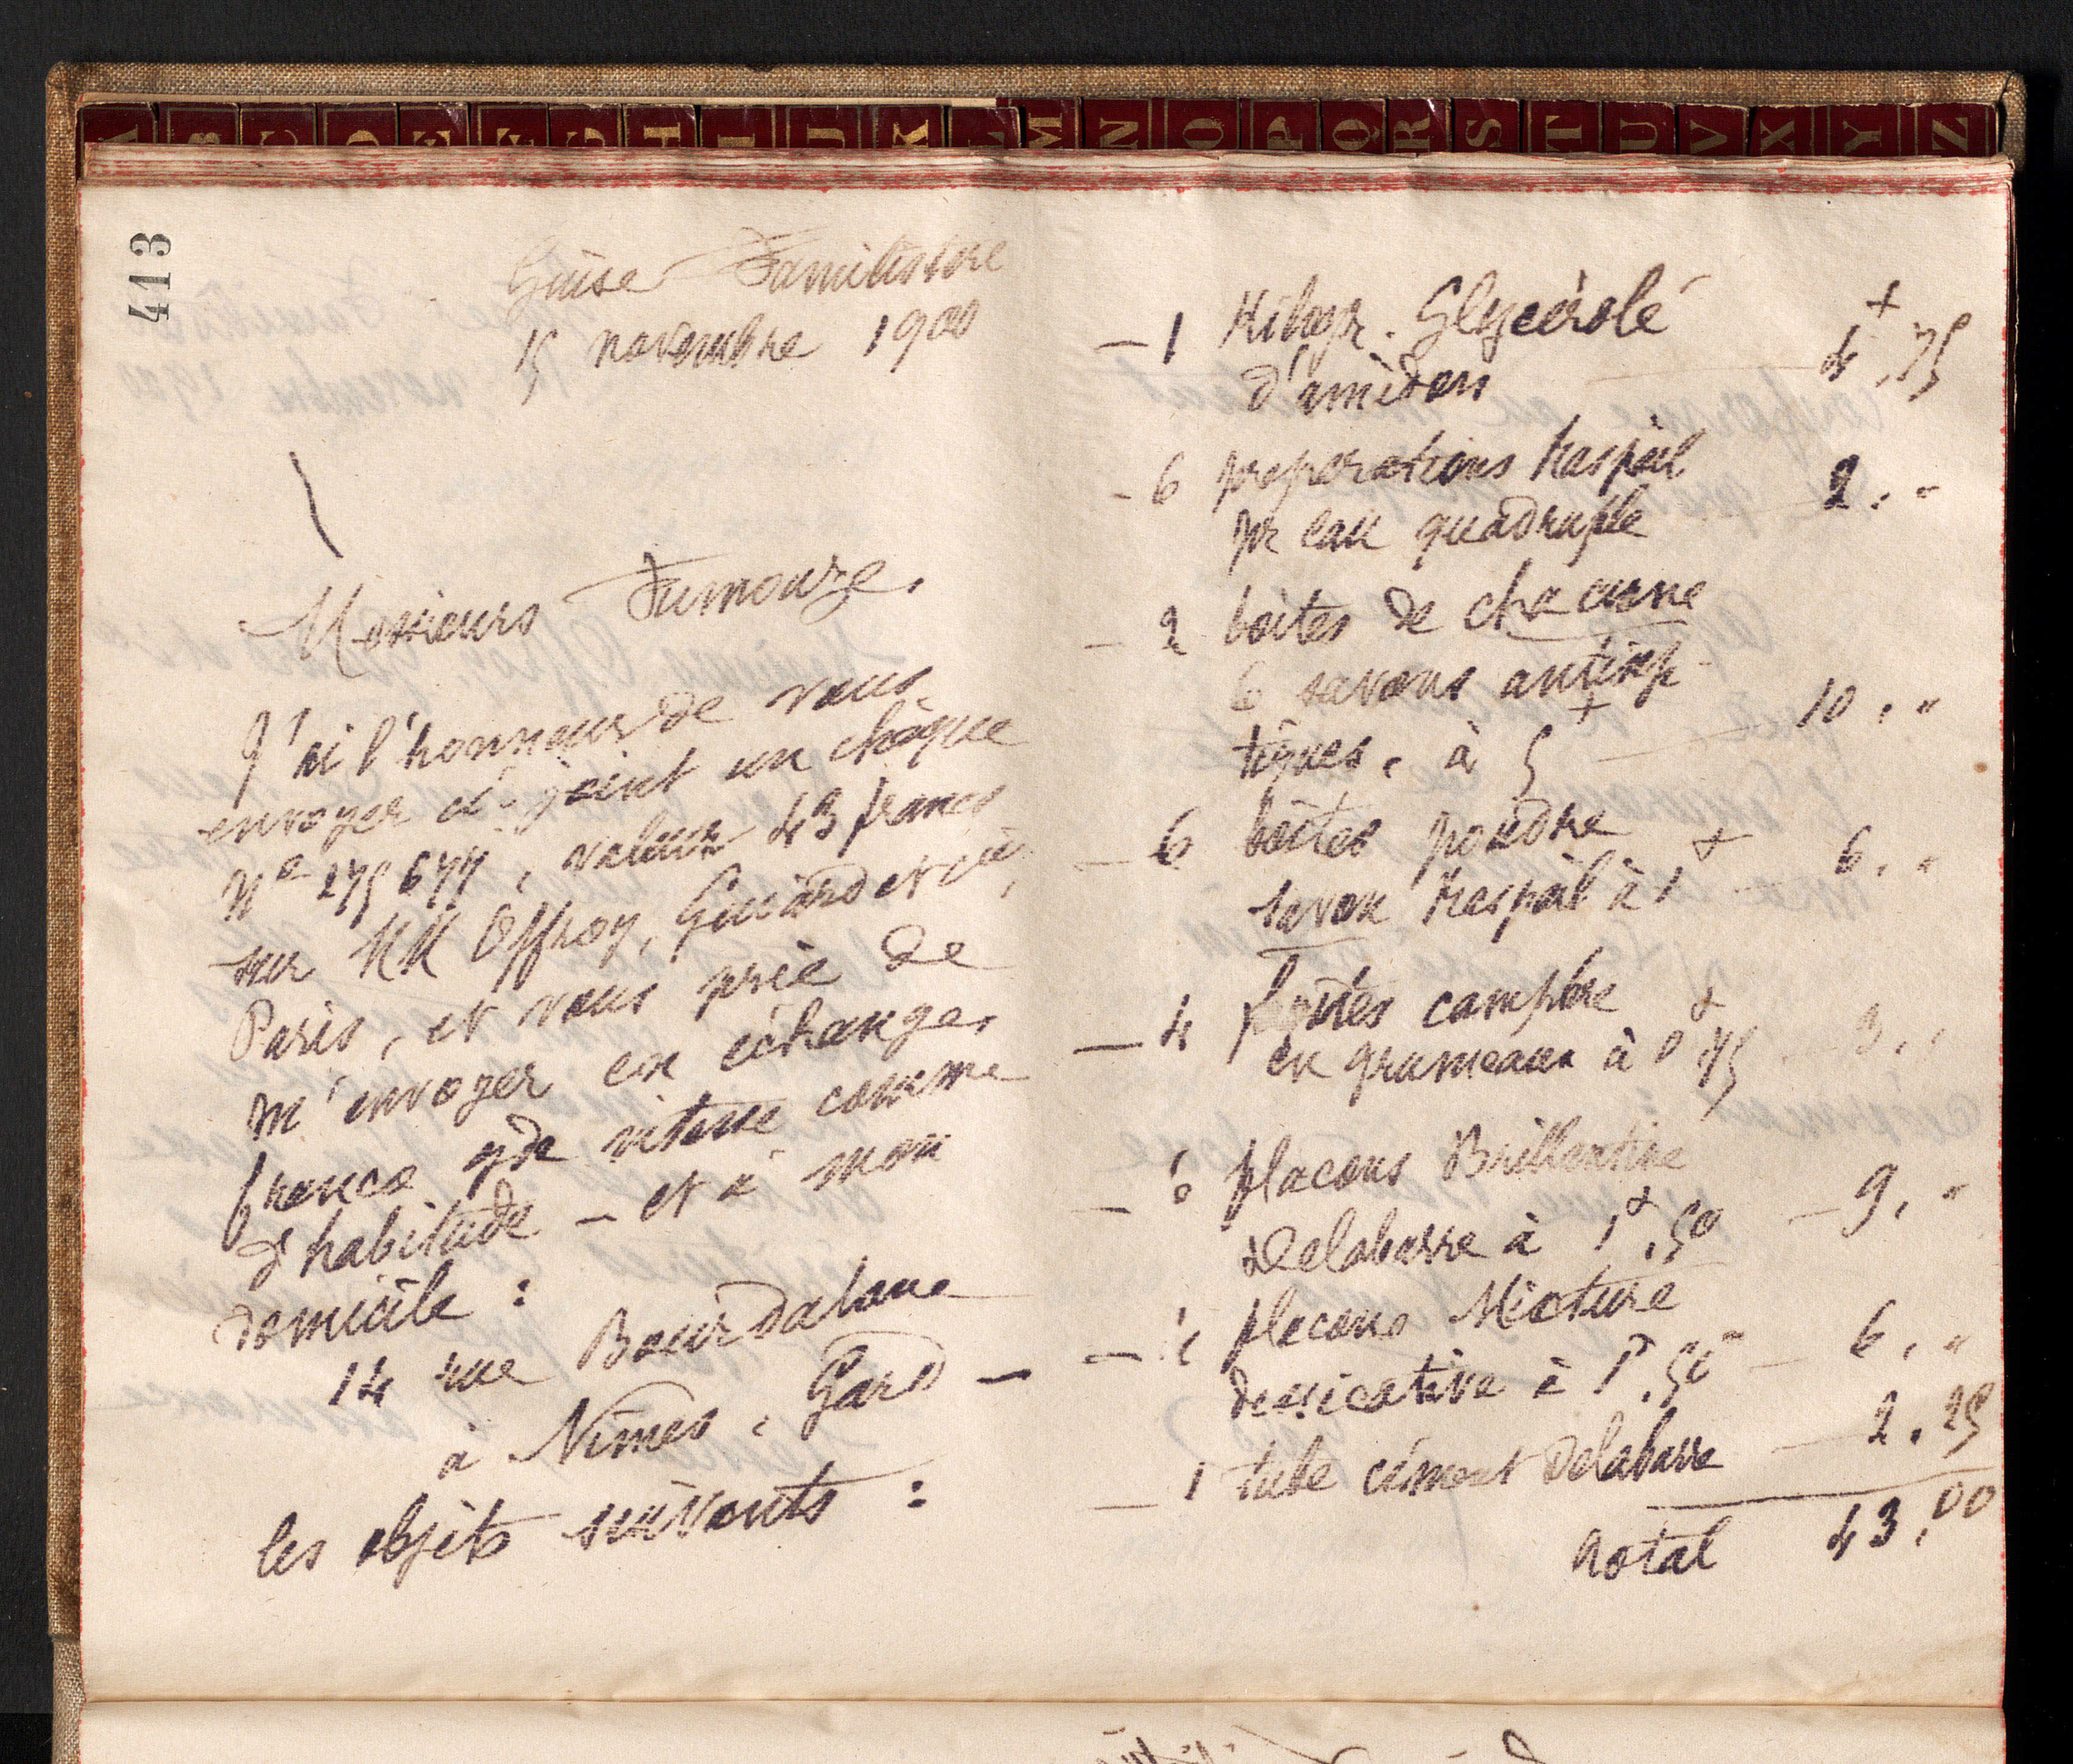 A B C D E F G H I J K L M N O P Q R S T U V X Y Z
413
Guise Familistère
15 novembre 1900
Messieurs Fumouze,
J'ai l'honneur de vous
envoyer ci-joint un chèque
No 275677, valeur 43 francs
sur MM Offroy, Guiard et Cie,
Paris, et vous prie de
m'envoyer en échange,
franco gde vitesse comme
d'habitude – et à mon
domicile :
14 rue Bourdaloue
à Nîmes, Gard –
les objets suivants :
– 1 Kilogr. Glycérolé
d'amidon 4f,75
– 6 preparations Raspail
pr eau quadruple 2,"
– 2 boîtes de chacune
6 savons antisep-
tiques, à 5f — 10,"
– 6 boîtes poudre
savon Raspail à 1f — 6,"
– 4 boîtes camphre
en grumeaux à 0f75 — 3,"
– 6 flacons Brillantine
Delabarre à 1f,50 — 9,"
– flacons Mixture
dessicative à 1f,50 — 6,"
– 1 tube ciment Delabarre — 2,25
Total 43,00